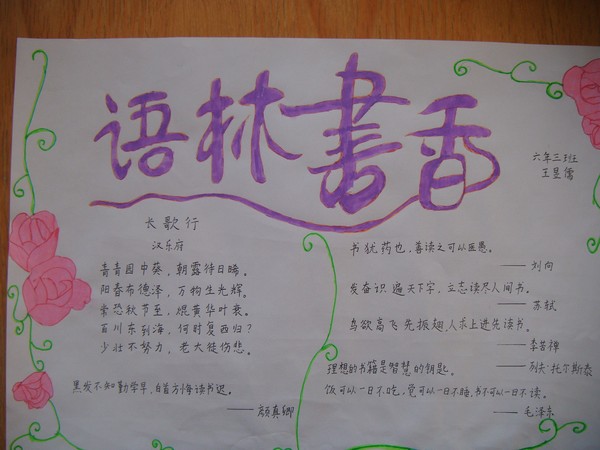 语林書香
六年三班
王昱儒
长歌行
汉乐府
青青园中葵,朝露待日晞。
阳春布德泽,万物生光辉。
常恐秋节至,焜黄华叶衰。
百川东到海,何时复西归?
少壮不努力,老大徒伤悲。
黑发不知勤学早,白首方悔读书迟。
——颜真卿
书犹药也,善读之可以医愚。
——刘向
发奋识遍天下字,立志读尽人间书。
——苏轼
鸟欲高飞先振翅,人求上进先读书。
——李苦禅
理想的书籍是智慧的钥匙。
——列夫·托尔斯泰
饭可以一日不吃,觉可以一日不睡,书不可以一日不读。
——毛泽东